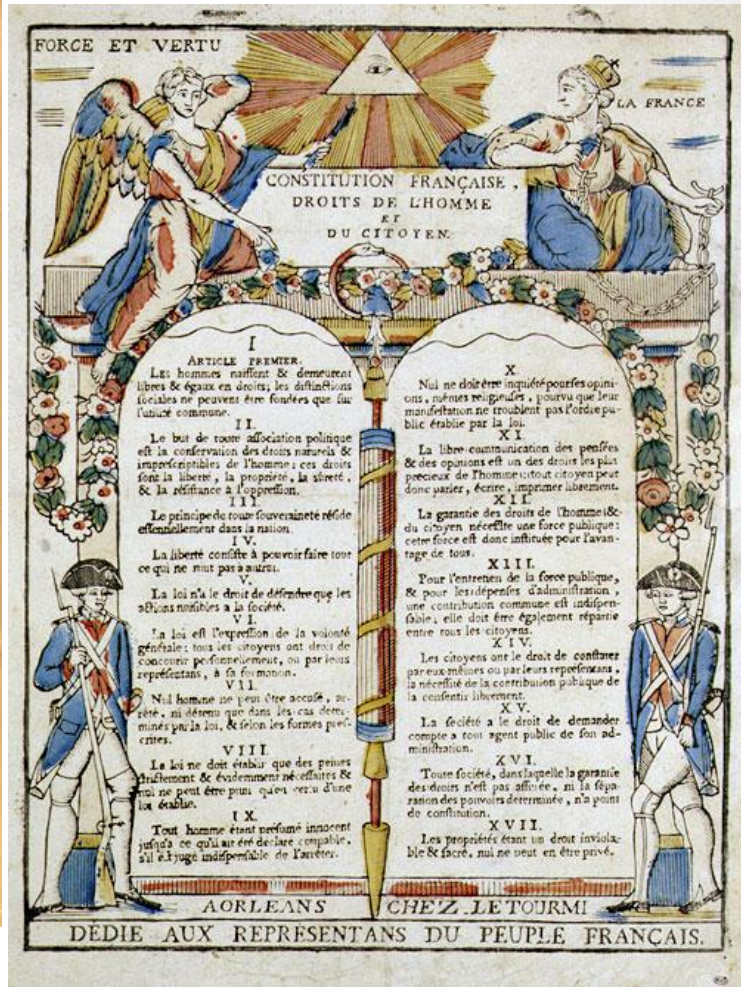 FORCE ET VERTU
LA FRANCE
CONSTITUTION FRANÇAISE,
DROITS DE L'HOMME
ET
DU CITOYEN.
I
ARTICLE PREMIER.
Les hommes naissent & demeurent
libres & égaux en droits; les distinctions
sociales ne peuvent être fondées que sur
l'utilité commune.
II.
Le but de toute association politique
est la conservation des droits naturels &
imprescriptibles de l'homme: ces droits
sont la liberté, la propriété, la sûreté,
& la résistance à l'oppression.
III.
Le principe de toute souveraineté réside
essentiellement dans la nation.
IV.
La liberté consiste à pouvoir faire tout
ce qui ne nuit pas à autrui.
V.
La loi n'a le droit de défendre que les
actions nuisibles a la société.
VI.
La loi est l'expression de la volonté
générale: tous les citoyens ont droit de
concourir personnellement, ou par leurs
représentans, à sa formation.
VII.
Nul homme ne peut être accusé, ar-
rêté, ni détenu que dans les cas déter-
minés par la loi, & selon les formes pres-
crites.
VIII.
La loi ne doit établir que des peines
strictement & évidemment nécessaires &
nul ne peut être puni qu'en vertu d'une
loi établie.
IX.
Tout homme étant présumé innocent
jusqu'a ce qu'il ait été déclaré coupable,
s'il est jugé indispensable de l'arrêter.
X.
Nul ne doit être inquiété pour ses opini-
ons, mêmes religieuses, pourvu que leur
manifestation ne troublent pas l'ordre pu-
blic établie par la loi.
XI.
La libre communication des pensées
& des opinions est un des droits les plus
précieux de l'homme: tout citoyen peut
donc parler, écrire, imprimer librement.
XII.
La garantie des droits de l'homme &
du citoyen nécessite une force publique:
cette force est donc instituée pour l'avan-
tage de tous.
XIII.
Pour l'entretien de la force publique,
& pour les dépenses d'administration,
une contribution commune est indispen-
sable; elle doit être également répartie
entre tous les citoyens.
XIV.
Les citoyens ont le droit de constater
par eux-mêmes ou par leurs représentans,
la nécessité de la contribution publique de
la consentir librement.
XV.
La société a le droit de demander
compte a tout agent public de son ad-
ministration.
XVI.
Toute société, dans laquelle la garantie
des droits n'est pas assurée, ni la sépa-
ration des pouvoirs déterminée, n'a point
de constitution.
XVII.
Les propriétés étant un droit inviola-
ble & sacré, nul ne peut en être privé.
A ORLEANS CHEZ LETOURMI
DÉDIÉ AUX REPRÉSENTANS DU PEUPLE FRANÇAIS.